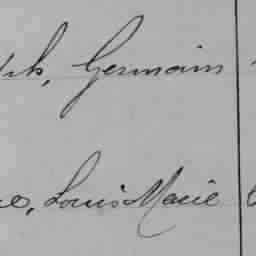 Germain
Louis Marie